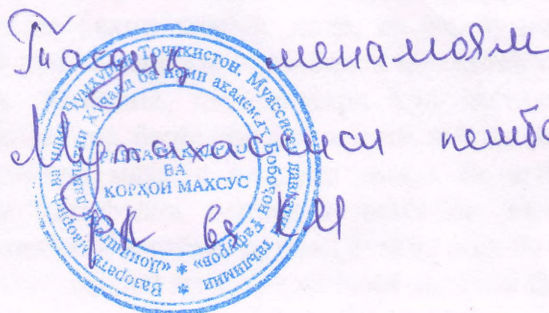 Тасдиқ менамоям
Мутахассиси пешба
РК ва КМ
Вазорати маориф ва илми Ҷумҳурии Тоҷикистон. Муассисаи давлатии таълимии
«Донишгоҳи давлатии Хуҷанд ба номи академик Бобоҷон Ғафуров»
ВА
КОРҲОИ МАХСУС